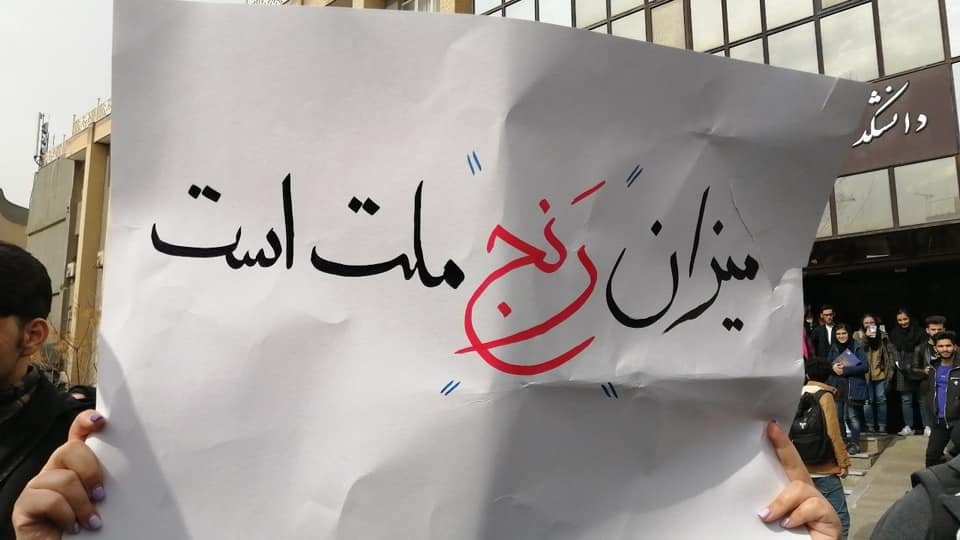 میزان رنج ملت است
دانشکد